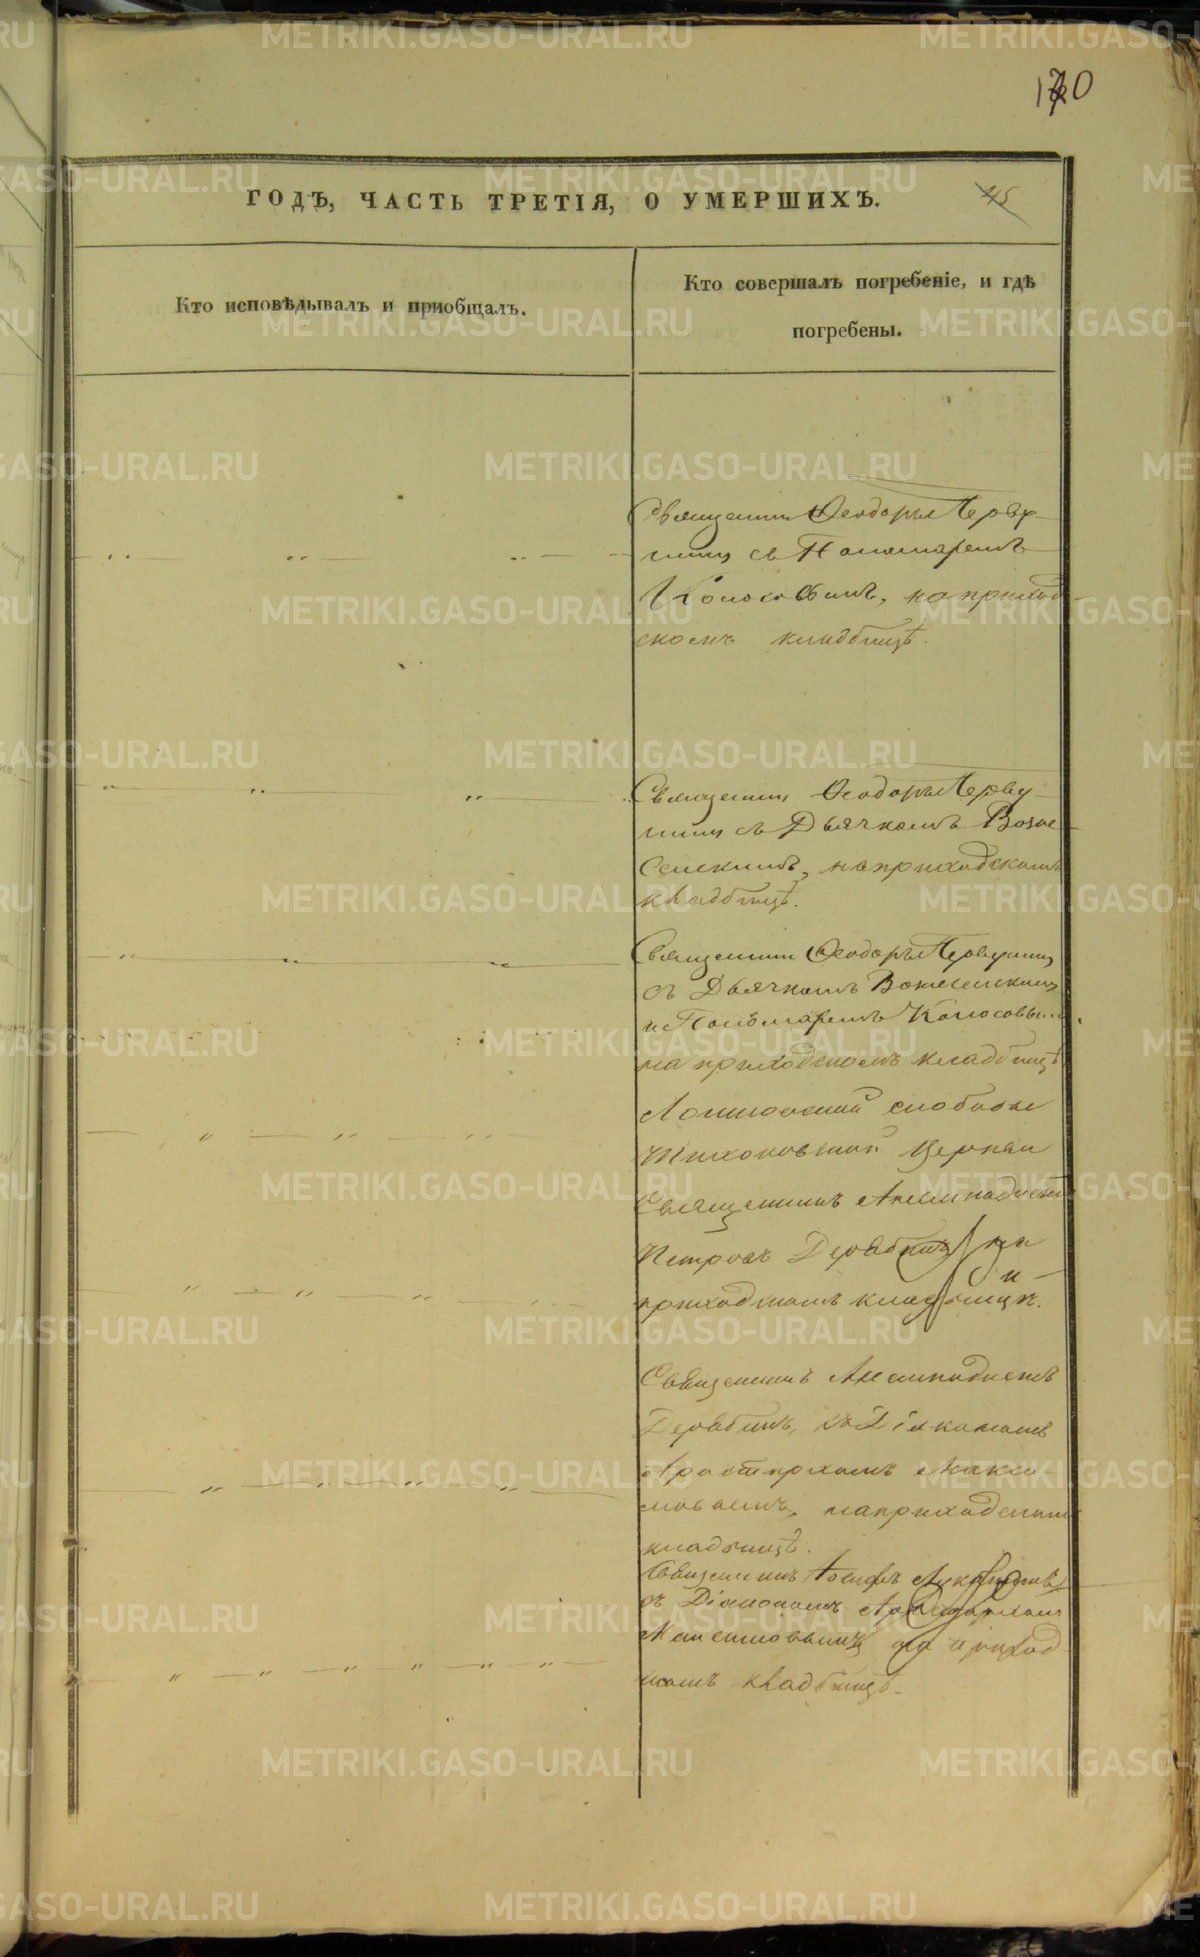 170
ГОДЪ, ЧАСТЬ ТРЕТІЯ, О УМЕРШИХЪ.
45
Кто исповѣдывалъ и пріобщалъ.
Кто совершалъ погребеніе, и гдѣ
погребены.
Священникъ Ѳеодоръ Перву-
шинъ съ Пономаремъ
Колосовымъ, на приход-
скомъ кладбищѣ.
Священникъ Ѳеодоръ Перву-
шинъ съ Дьячкомъ Возне-
сенскимъ, на приходскомъ
кладбищѣ.
Священникъ Ѳеодоръ Первушинъ
съ Дьячкомъ Вознесенскимъ
и Пономаремъ Колосовы...
на приходскомъ кладбищѣ
слободы
Тихоновской церкви
Священникъ Анемподистъ
Петровъ Дерябинъ на
приходскомъ кладбищѣ.
Священникъ Анемподистъ
Дерябинъ, съ Діакономъ
Аристархомъ Макси-
мовымъ, на приходскомъ
кладбищѣ.
Священникъ Іосифъ
съ Діакономъ Аристархомъ
Максимовымъ на приход
скомъ кладбищѣ.
METRIKI.GASO-URAL.RU